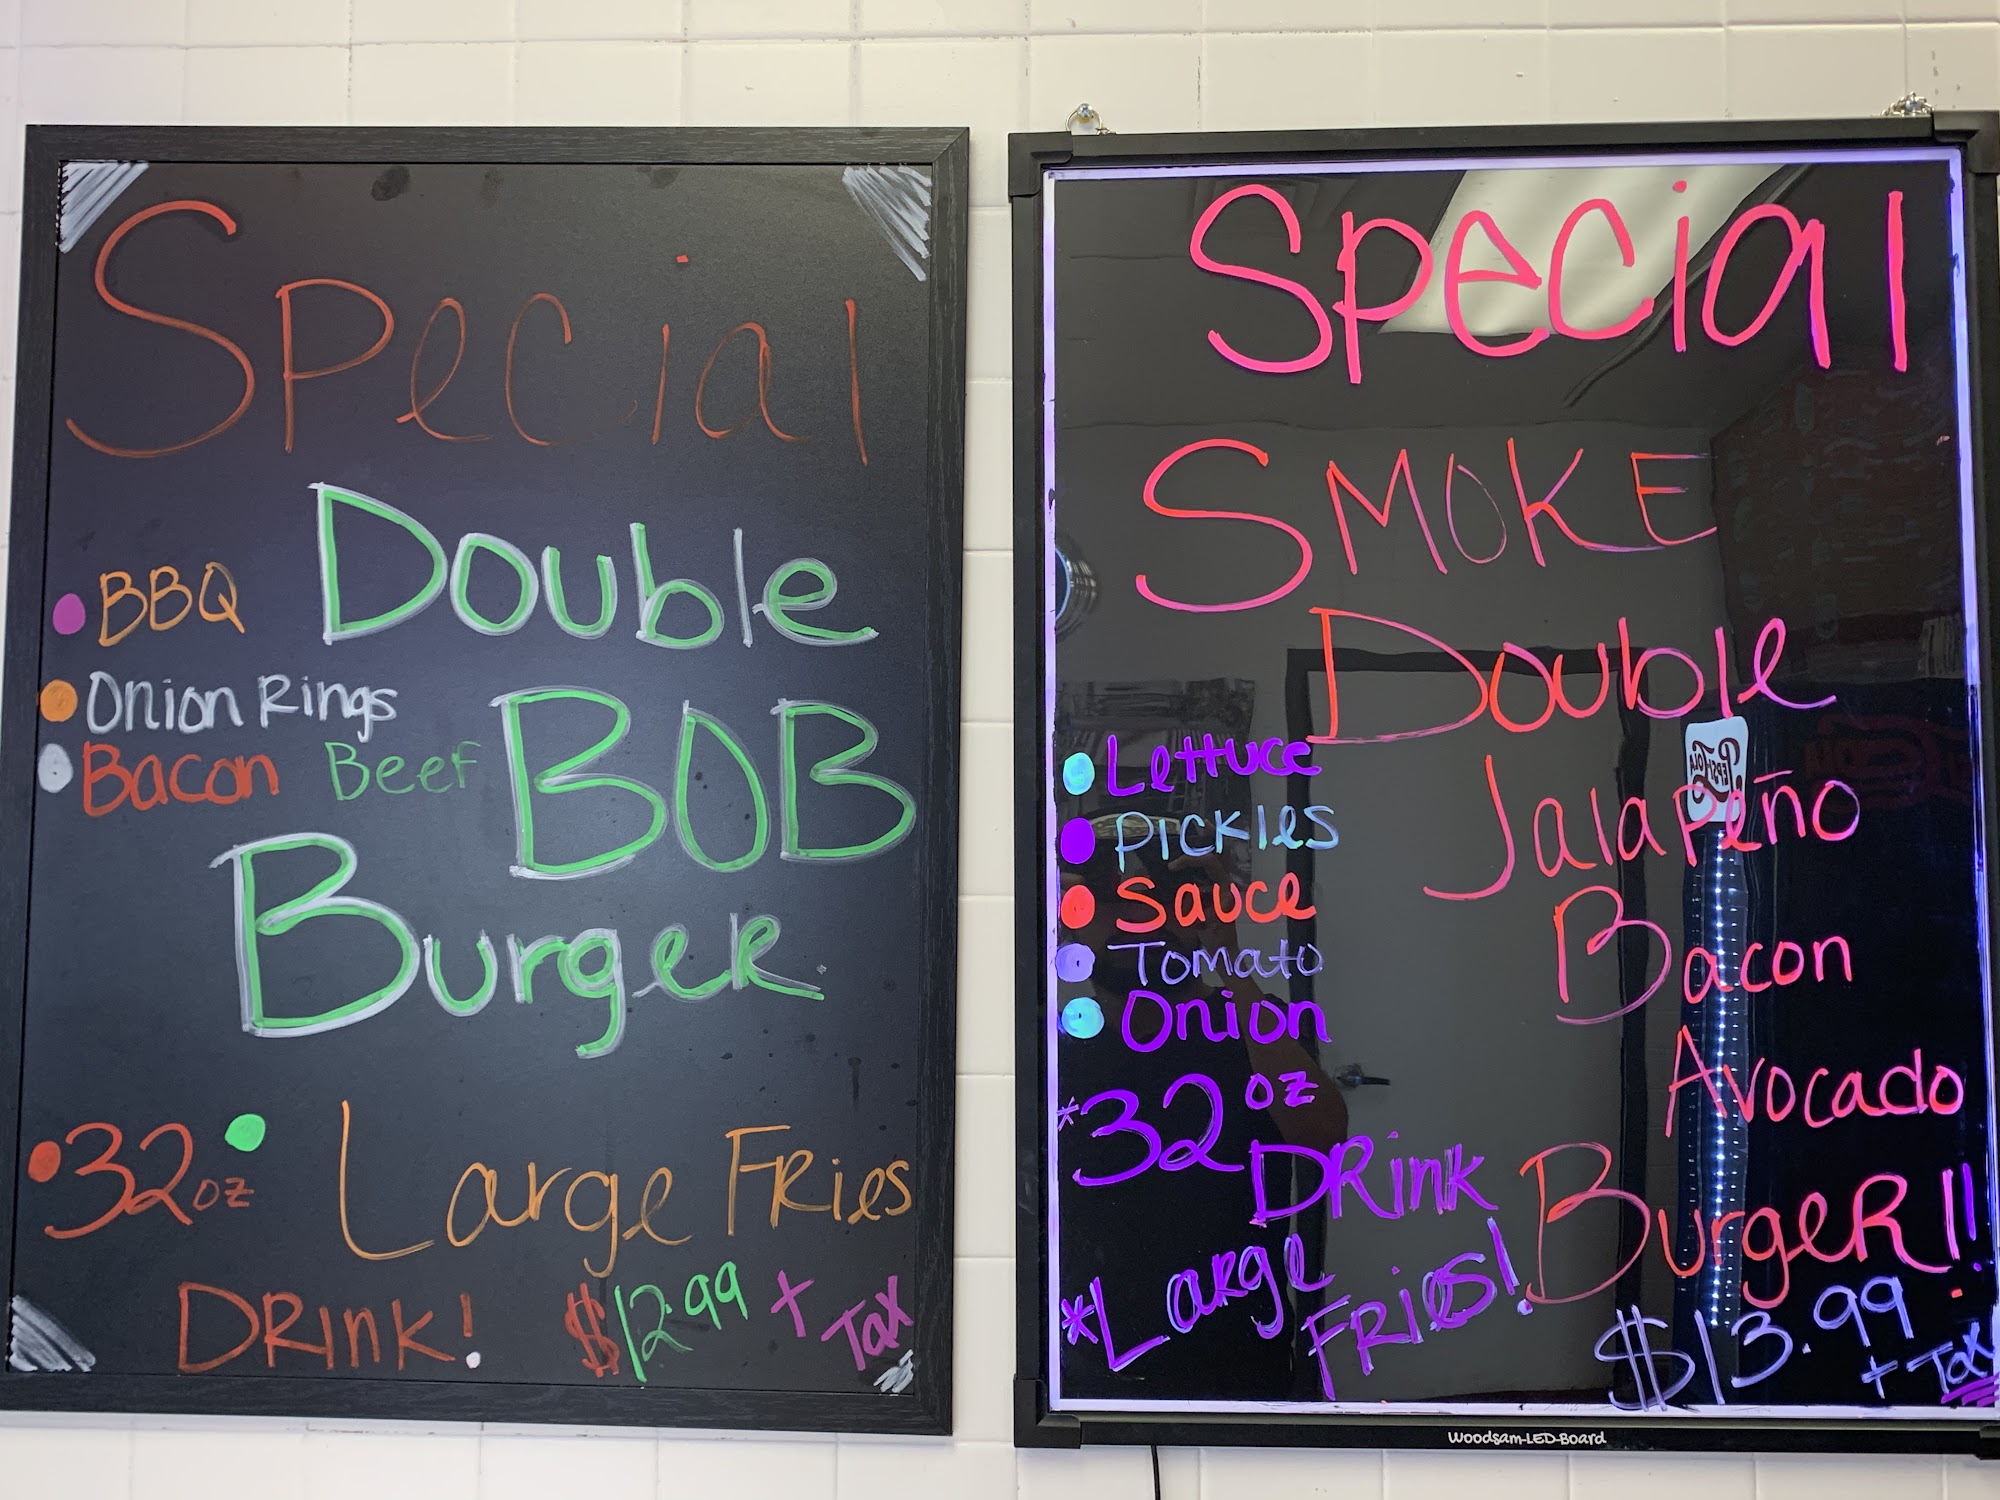 Special
Double
• BBQ
• Onion Rings
• Bacon Beef
BOB
Burger
• 32 oz
Large Fries
Drink!
$12.99 + Tax
Special
SMOKE
Double
• Lettuce
• Pickles
• Sauce
• Tomato
• Onion
Jalapeño
Bacon
Avocado
Burger!!
*32 oz
Drink
*Large
Fries!
$13.99
+ Tax
Woodsam-LED-Board